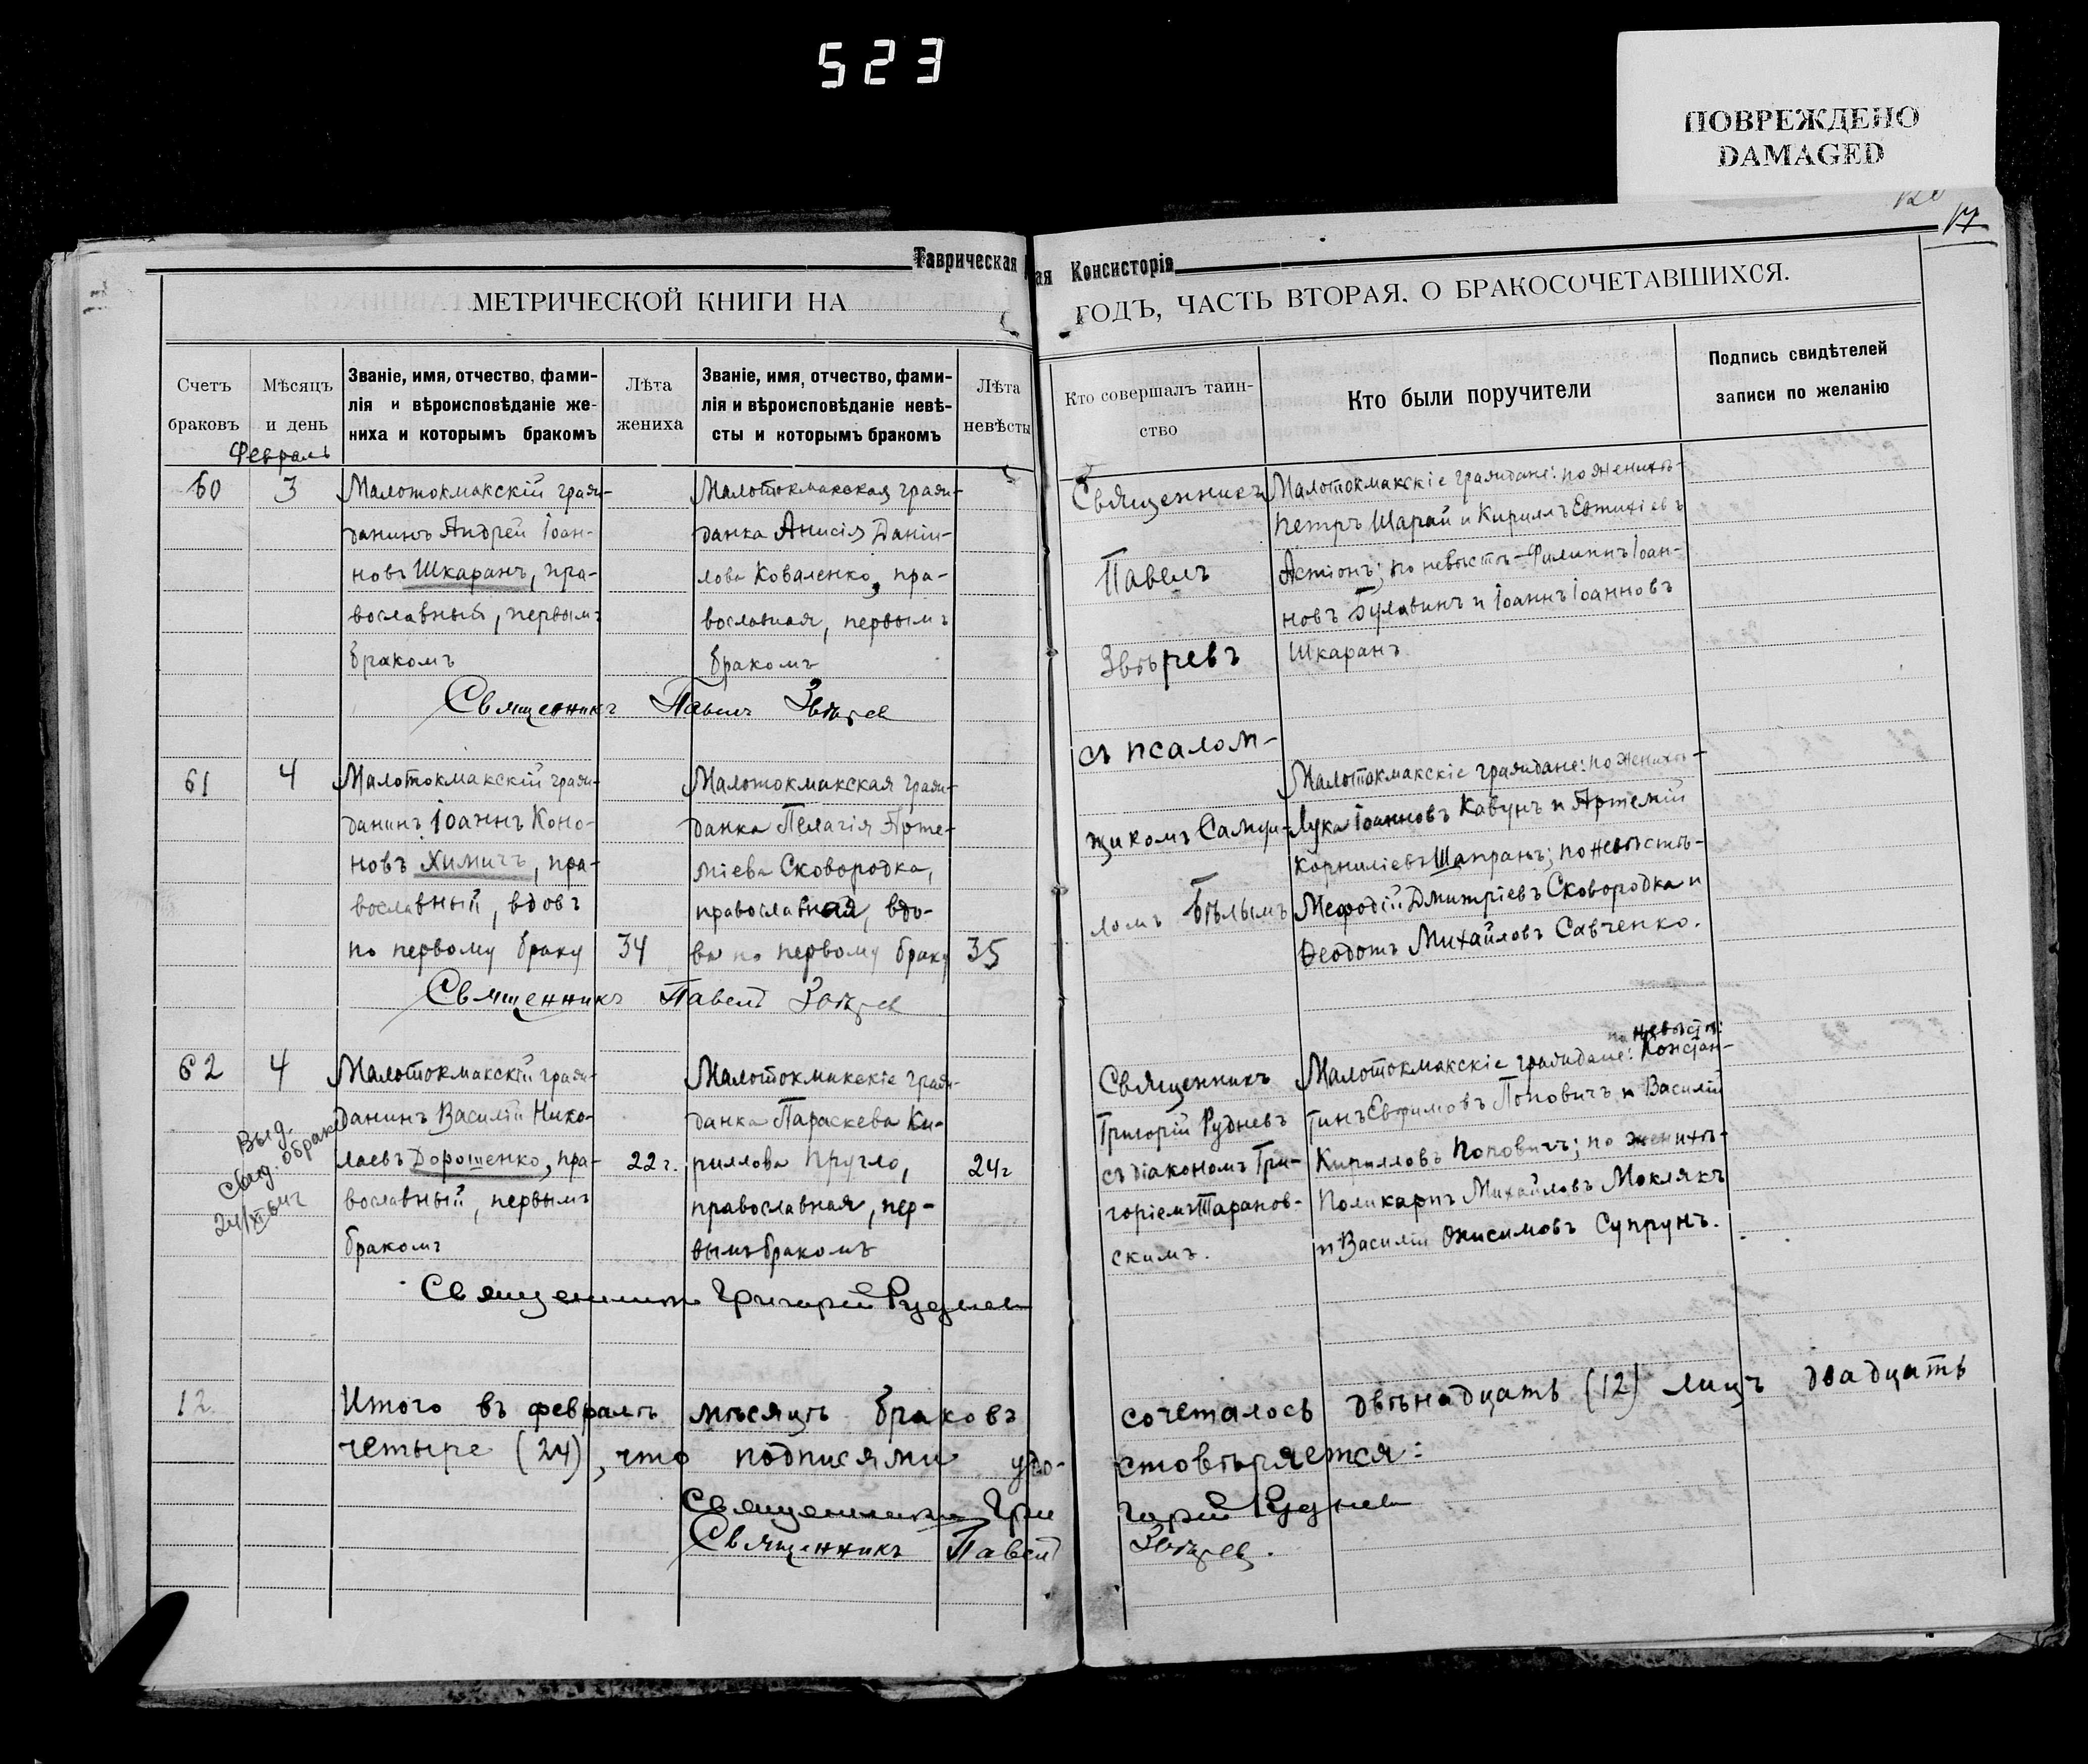 523
ПОВРЕЖДЕНО
DAMAGED
17
Таврическая
ая Консисторія
МЕТРИЧЕСКОЙ КНИГИ НА
ГОДЪ, ЧАСТЬ ВТОРАЯ, О БРАКОСОЧЕТАВШИХСЯ.
Счетъ
браковъ
Мѣсяцъ
и день
Званіе, имя, отчество, фами-
лія и вѣроисповѣданіе же-
ниха и которымъ бракомъ
Лѣта
жениха
Званіе, имя, отчество, фами-
лія и вѣроисповѣданіе невѣ-
сты и которымъ бракомъ
Лѣта
невѣсты
Кто совершалъ таин-
ство
Кто были поручители
Подпись свидѣтелей
записи по желанію
Февраль
60
3
Малотокмакскій граж-
данинъ Андрей Іоан-
новъ Шкаранъ, пра-
вославный, первымъ
бракомъ
Малотокмакская граж-
данка Анисія Даніи-
лова Коваленко, пра-
вославная, первымъ
бракомъ
Священникъ Павелъ Звѣрев
Священникъ
Павелъ
Звѣревъ
съ псалом-
щикомъ Самуи-
ломъ Бѣлымъ
Малотокмакскіе граждане: по женихѣ-
Петръ Шарай и Кириллъ Евтихіевъ
по невѣстѣ-Филиппъ Іоан-
новъ Булавинъ и Іоаннъ Іоанновъ
Шкаранъ
61
4
Малотокмакскій граж-
данинъ Іоаннъ Коно-
новъ Химичъ, пра-
вославный, вдовъ
по первому браку
34
Малотокмакская граж-
данка Пелагія Арте-
міева Сковородка,
православная, вдо-
ва по первому браку
35
Священникъ Павелъ Звѣрев
Малотокмакскіе граждане: по женихѣ-
Лука Іоанновъ Кавунъ и Артемій
Корниліевъ Шапранъ; по невѣстѣ-
Мефодій Дмитріевъ Сковородка и
Ѳеодотъ Михайловъ Савченко.
62
4
Выд.
свид. о брак
24/XI
Малотокмакскій граж-
данинъ Василій Нико-
лаевъ Дорошенко, пра-
вославный, первымъ
бракомъ
22 г.
Малотокмакскіе граж-
данка Параскева Ки-
риллова Пругло,
православная, пер-
вымъ бракомъ
24 г
Священникъ Григорій Руднев
Священникъ
Григорій Рудневъ
съ діакономъ Гри-
горіемъ Таранов-
скимъ.
по невѣстѣ:
Малотокмакскіе граждане: Констан-
тинъ Евфимовъ Поповичъ и Василій
Кирилловъ Поповичъ; по женихѣ-
Поликарпъ Михайловъ Моклякъ
и Василій Онисимовъ Супрунъ.
12
Итого въ февралѣ мѣсяцѣ браковъ сочеталось двѣнадцать (12) лицъ двадцать
четыре (24), что подписями удо- стовѣряется:
Священникъ Гри горій Руднев
Священникъ Павелъ Звѣрев.